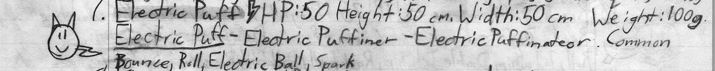 1. Electric Puff HP:50 Height:50 cm. Width:50 cm Weight:100g.
Electric Puff-Electric Puffiner-Electric Puffinateor. Common
Bounce, Roll, Electric Ball, Spark